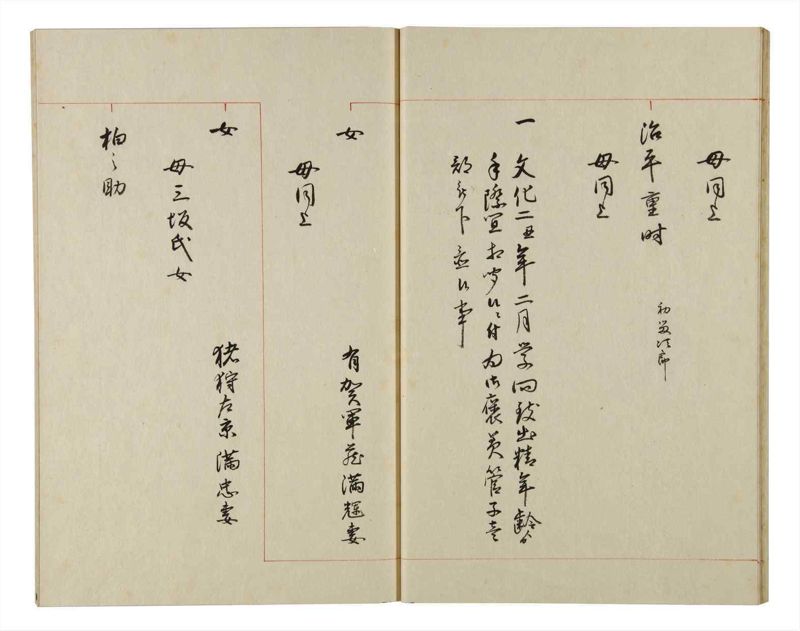 母同上
治平重時
初 次郎
母同上
一 文化二丑年二月学問致出精年齢ゟ
手際宜相聞候ニ付為御褒美管子壱
部被下置候事
女 有賀軍蔵満輝妻
母同上
女 猪狩左京満忠妻
母三坂氏女
柏之助